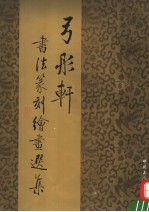 弓彤軒
書法篆刻繪畫選集